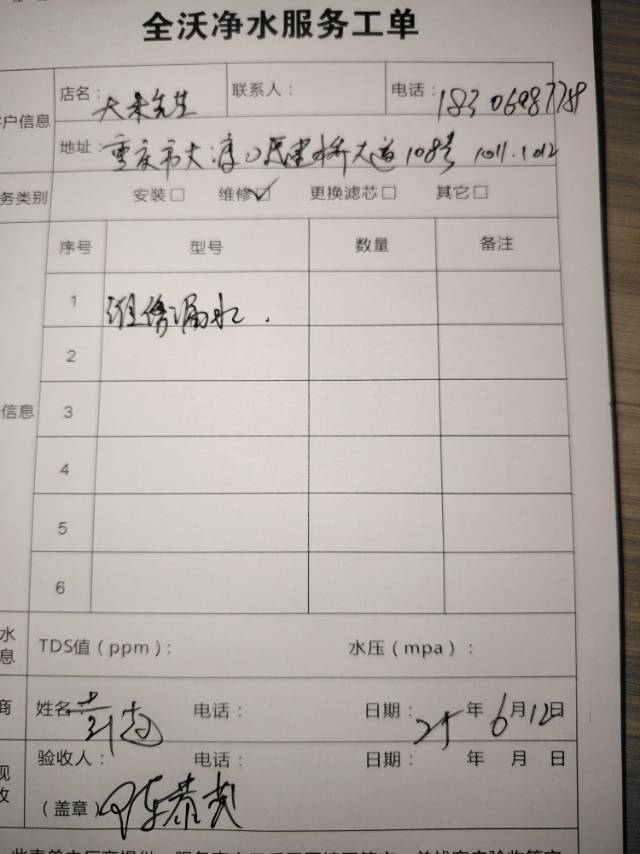 全沃净水服务工单
店名: 大米先生 联系人: 电话:
户信息
地址: 重庆市大渡口民建桥大道108号 1011.1012
务类别 安装□ 维修☑ 更换滤芯□ 其它□
序号 型号 数量 备注
1 维修漏水.
2
信息 3
4
5
6
水 TDS值(ppm): 水压(mpa):
息
商 姓名: 电话: 日期: 25 年 6月12日
现 验收人: 电话: 日期: 年 月 日
收 (盖章)